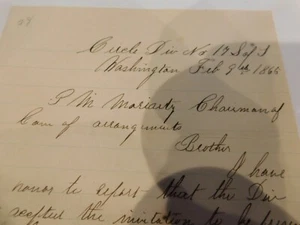 Circle Div No 17 S of T
Washington Feb 9th 1866
P M Moriarty Chairman of
Com of arrangements
Brother
I have
honor to report that the Div
accepted the invitation to be